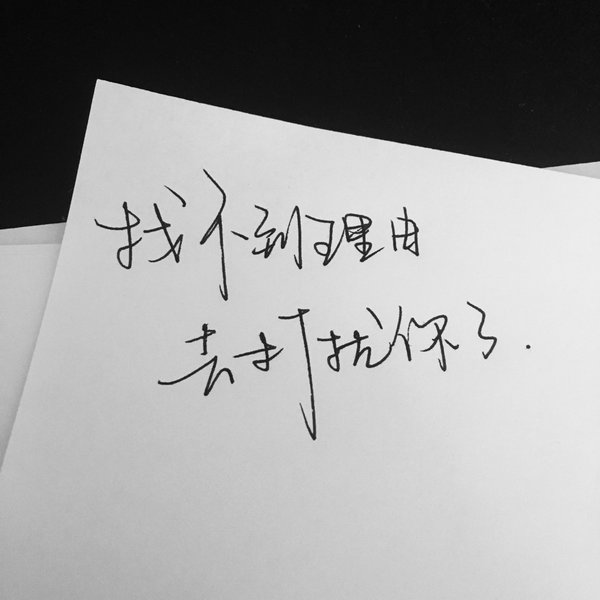 找不到理由
去打扰你了.